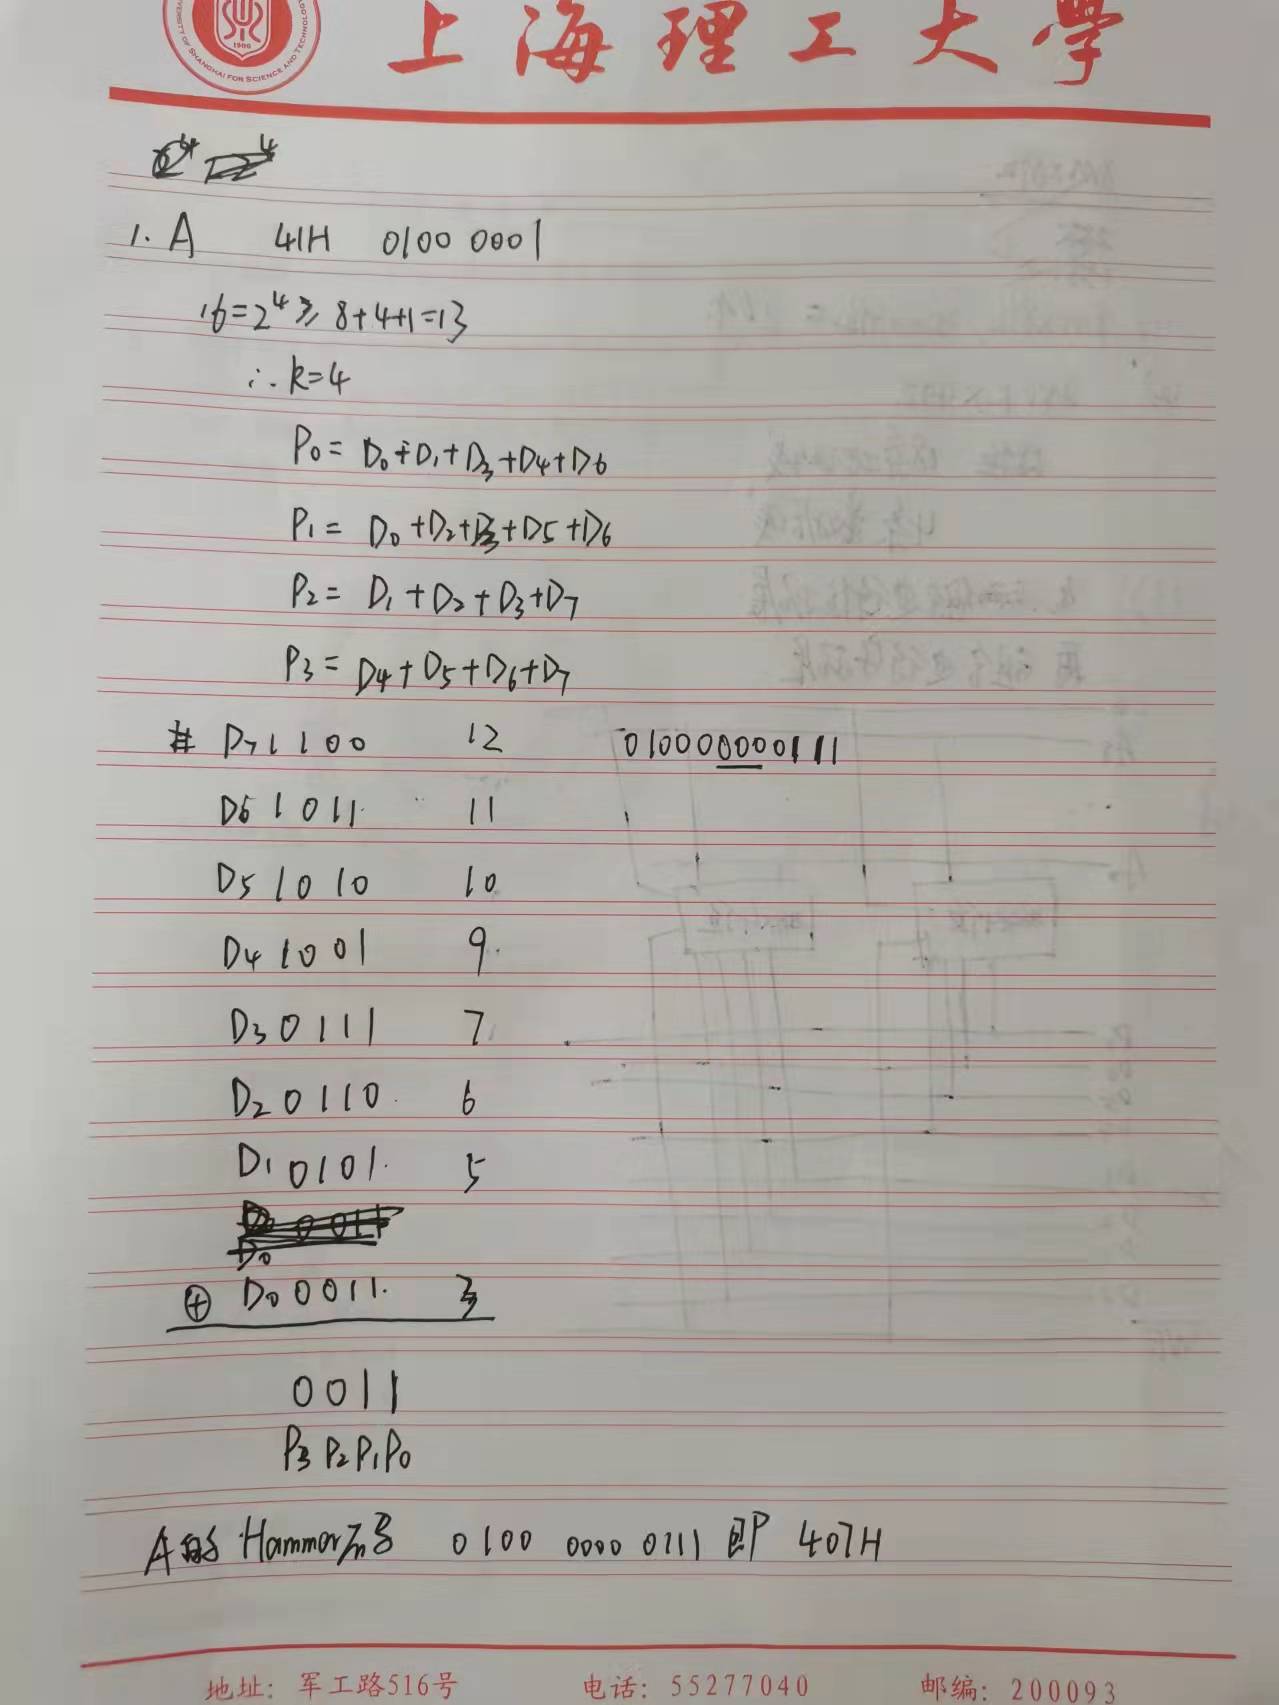 UNIVERSITY OF SHANGHAI FOR SCIENCE AND TECHNOLOGY
1906
上海理工大學
1. A 41H 0100 0001
16=2⁴≥8+4+1=13
∴k=4
P₀= D₀+D₁+D₃+D₄+D6
P₁= D₀+D₂+D₃+D5+D₆
P₂= D₁+D₂+D₃+D₇
P₃= D₄+D₅+D₆+D₇
D₇ 1100 12 010000000111
D₆ 1011 11
D₅ 1010 10
D₄ 1001 9
D₃ 0111 7
D₂ 0110 6
D₁ 0101 5
⊕ D₀ 0011 3
0011
P₃P₂P₁P₀
A的 Hammer码 0100 0000 0111 即 407H
地址：军工路516号 电话：55277040 邮编：200093